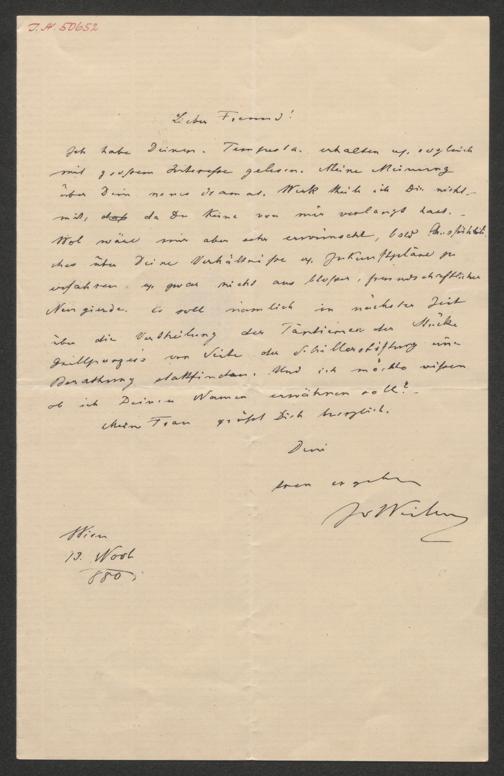 I.N. 50652
Lieber Freund!
Ich habe Deinen Tempesta erhalten u. sogleich
mit großem Interesse gelesen. Meine Meinung
über Dein neues dramat. Werk theile ich Dir nicht
mit, da Du keine von mir verlangt hast. –
Wol wäre mir aber sehr erwünscht, bald Ausführli
ches über Deine Verhältniße u. Zukunftspläne zu
erfahren. u. zwar nicht aus bloßer, freundschaftlicher
Neugierde. Es soll nämlich in nächster Zeit
über die Vertheilung der Tantiemen der Stücke
Grillparzers von Seite der Schillerstiftung eine
Berathung stattfinden. Und ich möchte wißen
ob ich Deinen Namen erwähnen soll? –
Meine Frau grüßt Dich herzlich.
Dein
treu ergebener
Wien
13. Novb
880